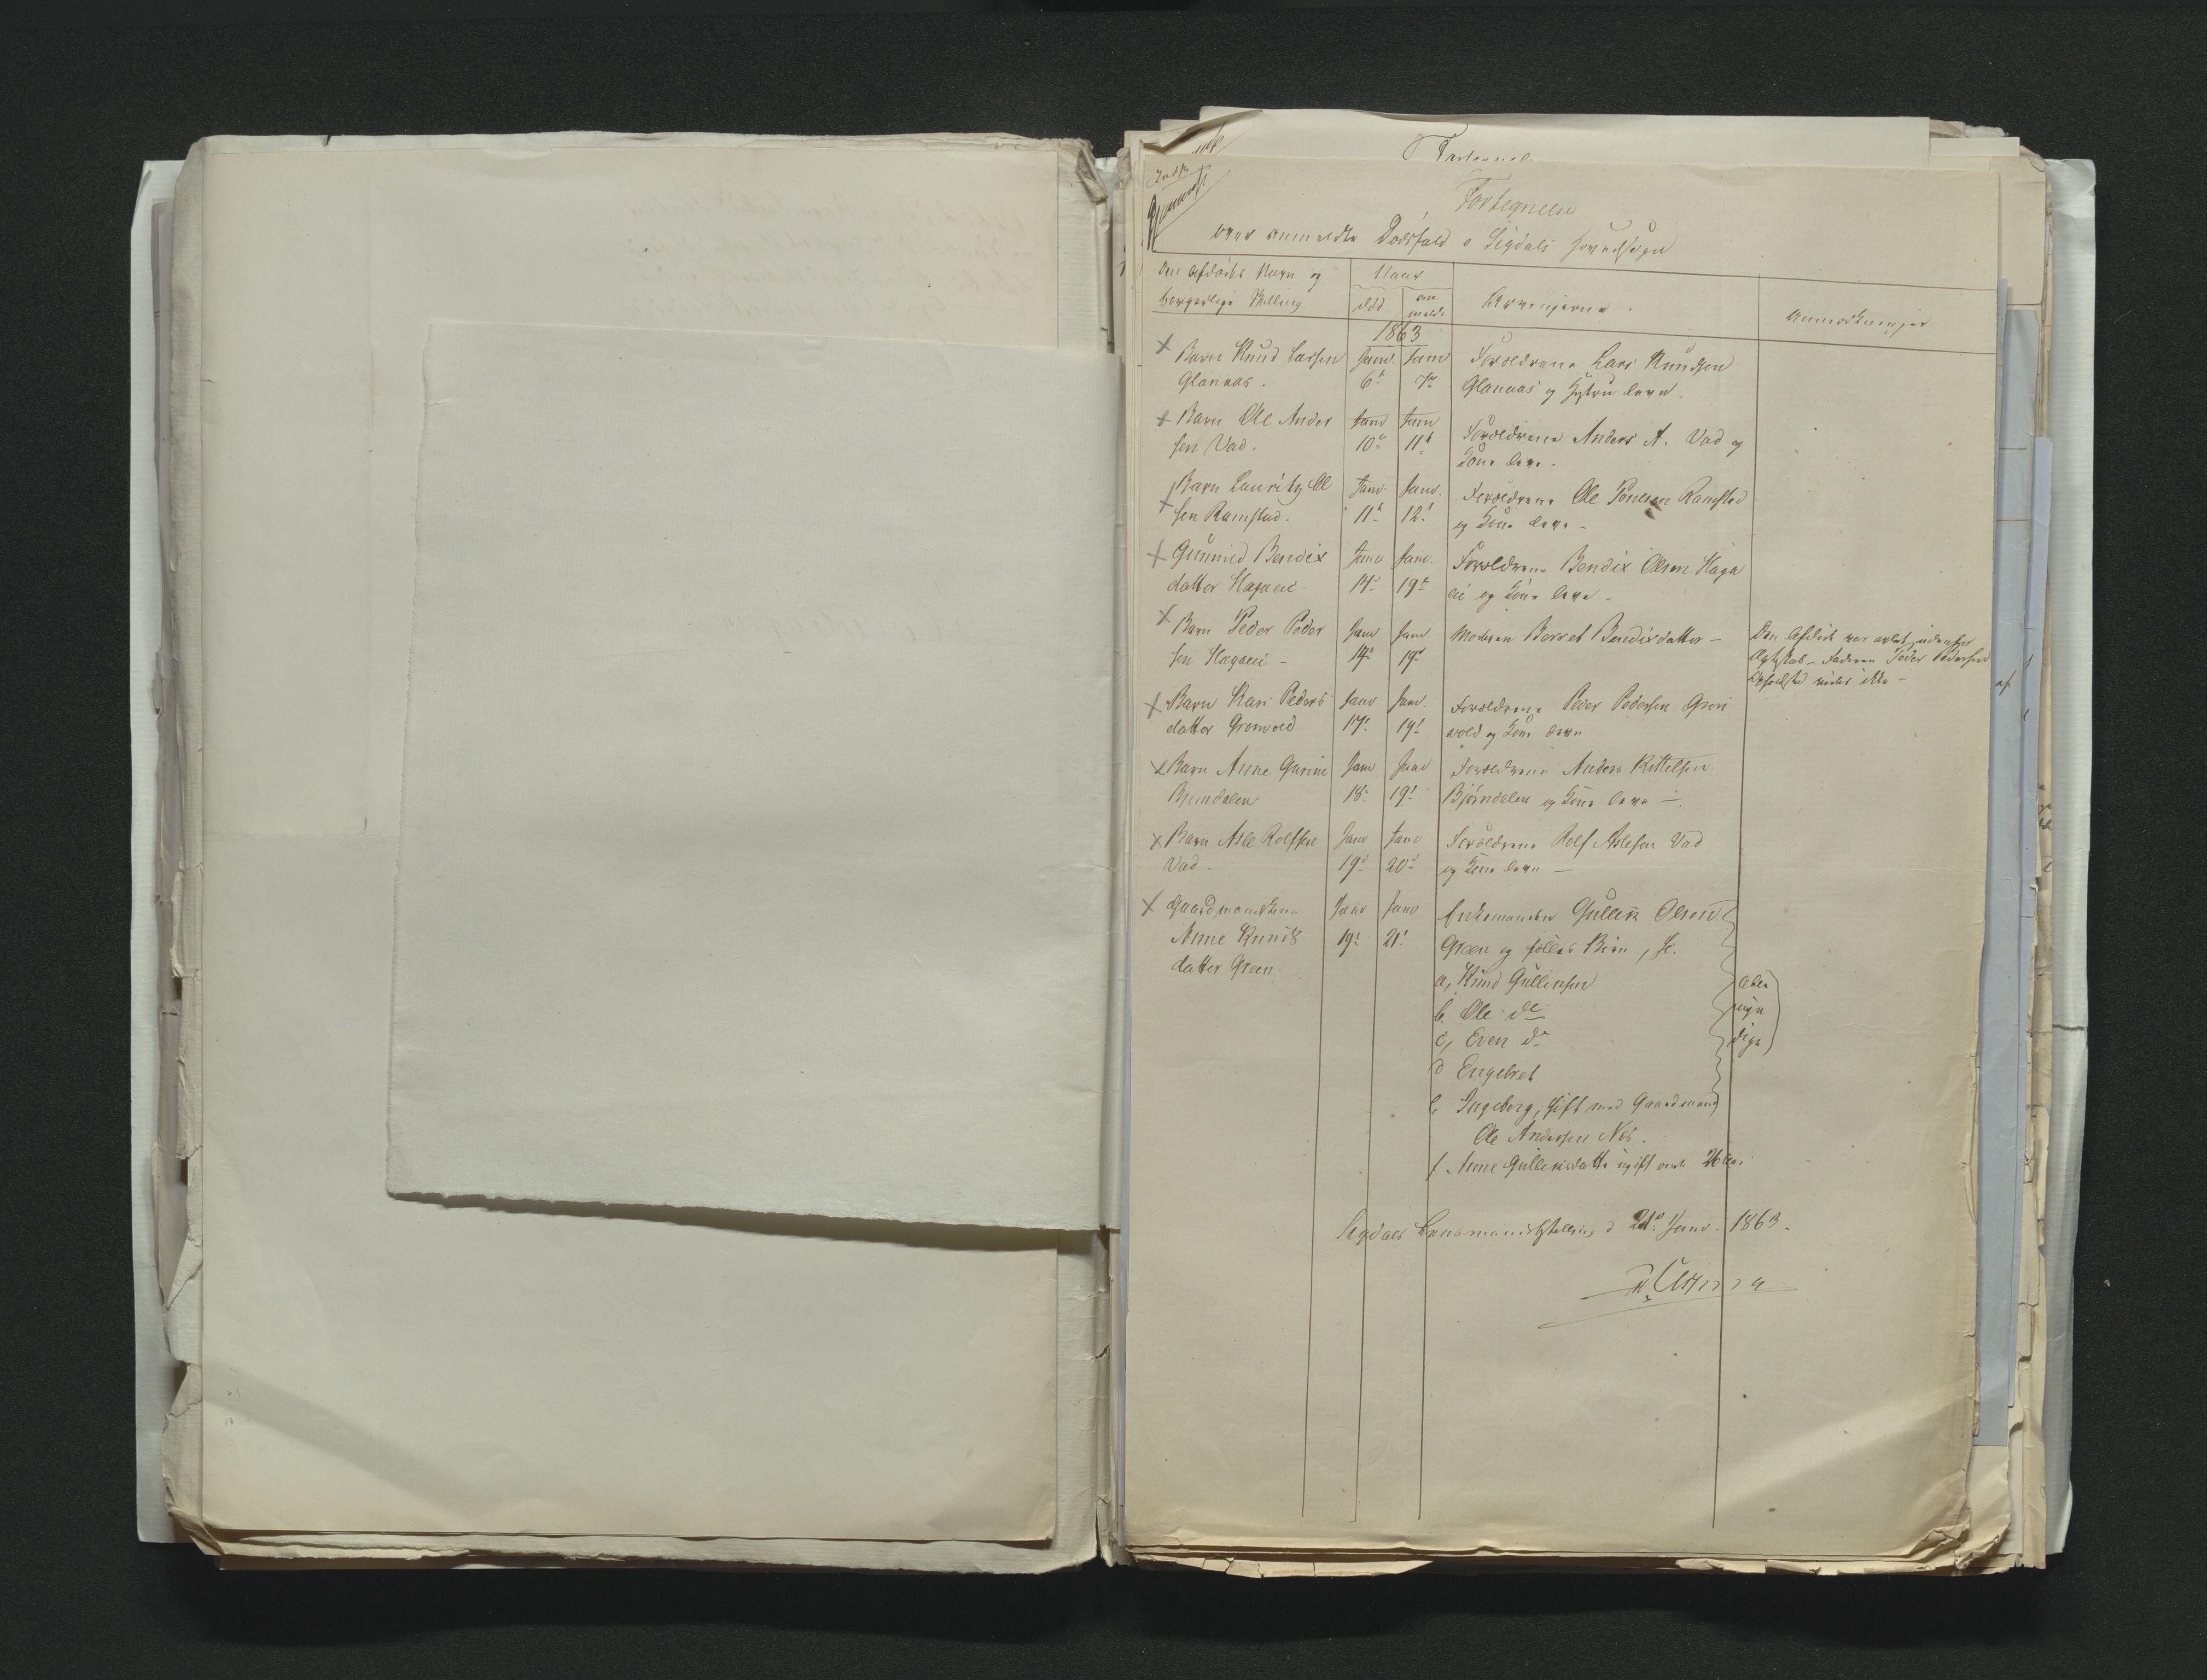 Fortegnelse
over anmeldte Dødsfald i Sigdals hovedsogn
Den Afdødes Navn og
borgerlige Stilling
Naar
død
an
meldt
Arvingerne.
Anmærkninger
1863
Barn Knud Larsen
Glanaas.
Janr 6t
Janr 7de
Forældrene Lars Knudsen
Glanaas og Hustru leve.
Barn Ole Ander
sen Vad.
Janr 10d
Janr 11t
Forældrene Anders A. Vad og
Kone leve.
Barn Lauritz Ol
sen Ramstad.
Janr 11t
Janr 12t
Forældrene Ole Ramstad
og Kone leve -
Gunnild Bendix
datter Hagaeie
Janr 14d
Janr 19d
Forældrene Bendix Olsen Haga
eie og Kone leve -
Barn Peder Peder
sen Hagaeie -
Janr 14d
Janr 19d
Moderen Berret Bendixdatter -
Den Afdøde var avlet udenfor
Ægteskab - Faderen Peder Pedersens
Opholdsted vides ikke -
Barn Kari Peders
datter Grønvold
Janr 17d
Janr 19d
Forældrene Peder Pedersen Grøn
vold og Kone leve
Barn Anne Gurine
Bjørndalen
Janr 18d
Janr 19d
Forældrene Anders Kittelsen
Bjørndalen og Kone leve -
Barn Asle Rolfsen
Vad.
Janr 19d
Janr 20d
Forældrene Rolf Aslesen Vad
og Kone leve -
Gaardmandskone
Anne Knuds
datter Green
Janr 19d
Janr 21d
Enkemanden Gullik Olsen
Green og fælles Børn,
a, Knud Gulliksen
b. Ole do
c, Even do
d Engebret
e, Ingeborg, gift med Gaardmand
Ole Andersen Næs.
f Anne Gulliksdatter ugift omtr 26 Aar
alle
myn
dige
Sigdals Lensmandsbestilling d 21d Janr 1863.